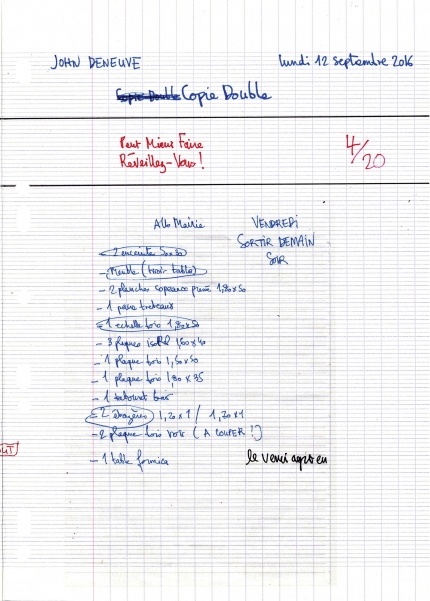 JOHN DENEUVE
lundi 12 septembre 2016
Copie Double Copie Double
Peut Mieux Faire
Réveillez-Vous !
4/20
Allo Mairie
VENDREDI
SORTIR DEMAIN
SOIR
- 2 enceinte 50x30
- Meuble (tiroir table)
- 2 planches 1,80x50
- 1 paire tréteaux
- 1 echelle bois 1,80x50
- 3 plaques 1,60x40
- 1 plaque bois 1,50x50
- 1 plaque bois 1,80x35
- 1 tabouret bois
- 2 étagères 1,20x1 / 1,70x1
- 2 plaque bois vert (A COUPER !)
- 1 table formica
le verni agis en